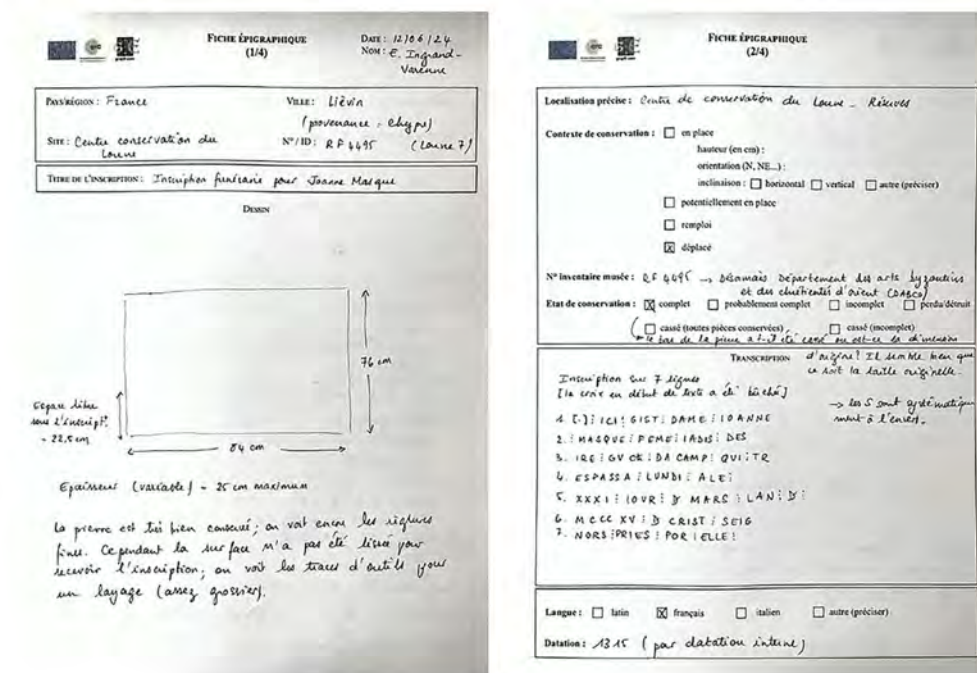 FICHE ÉPIGRAPHIQUE
(1/4)
DATE : 12/06/24
NOM : E. Ingrand-
Varenne
PAYS/RÉGION : France
VILLE : Liévin
(provenance : Chypre)
SITE : Centre conservation du
Louvre
N°/ID : RF 4495 (Louvre 7)
TITRE DE L'INSCRIPTION : Inscription funéraire pour Joanne Masque
DESSIN
76 cm
Espace libre
sous l'inscript°
- 22,5 cm
84 cm
Epaisseur (variable) - 25 cm maximum
La pierre est très bien conservée ; on voit encore les réglures
fines. Cependant la surface n'a pas été lissée pour
recevoir l'inscription ; on voit les traces d'outils pour
un layage (assez grossier).
FICHE ÉPIGRAPHIQUE
(2/4)
Localisation précise : Centre de conservation du Louvre - Réserves
Contexte de conservation : en place
hauteur (en cm) :
orientation (N, NE...) :
inclinaison : horizontal vertical autre (préciser)
potentiellement en place
remploi
déplacé
N° inventaire musée : RF 4495 → Désormais Département des arts byzantins
et des chrétientés d'orient (DABCO)
Etat de conservation : complet probablement complet incomplet perdu/détruit
cassé (toutes pièces conservées) cassé (incomplet)
le bas de la pierre a-t-il été cassé ou est-ce la dimension
d'origine ? Il semble bien que
ce soit la taille originelle.
TRANSCRIPTION
Inscription sur 7 lignes
[la croix en début de texte a été bûchée]
→ les S sont systématique
ment à l'envers.
1. [.]⋮ ICI⋮ GIST⋮ DAME⋮ IOANNE
2. ⋮MASQUE⋮FEME⋮IADIS⋮DES
3. IRE⋮GV DE⋮DA CAMP⋮QUI⋮TR
4. ESPASSA⋮LUNDI⋮ALE⋮
5. XXXI⋮IOUR⋮D MARS⋮LAN⋮D⋮
6. MCCC XV⋮D CRIST⋮SEIG
7. NORS⋮PRIES⋮POR⋮ELLE⋮
Langue : latin français italien autre (préciser)
Datation : 1315 (par datation interne)